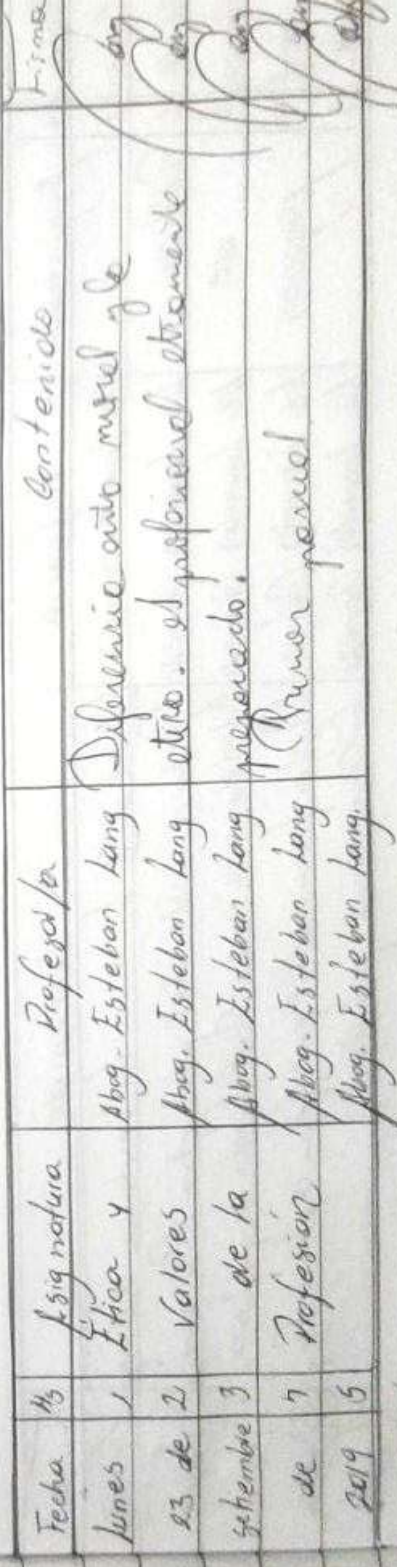 Fecha Hs Asignatura Profesor/a Contenido Firma
Lunes 1 Ética y Abog. Esteban Lang Diferencia entre moral y la
23 de 2 Valores Abog. Esteban Lang etica. el profesional eticamente
setiembre 3 de la Abog. Esteban Lang preparado.
de 7 Profesión Abog. Esteban Lang (Primer parcial
2019 5 Abog. Esteban Lang.